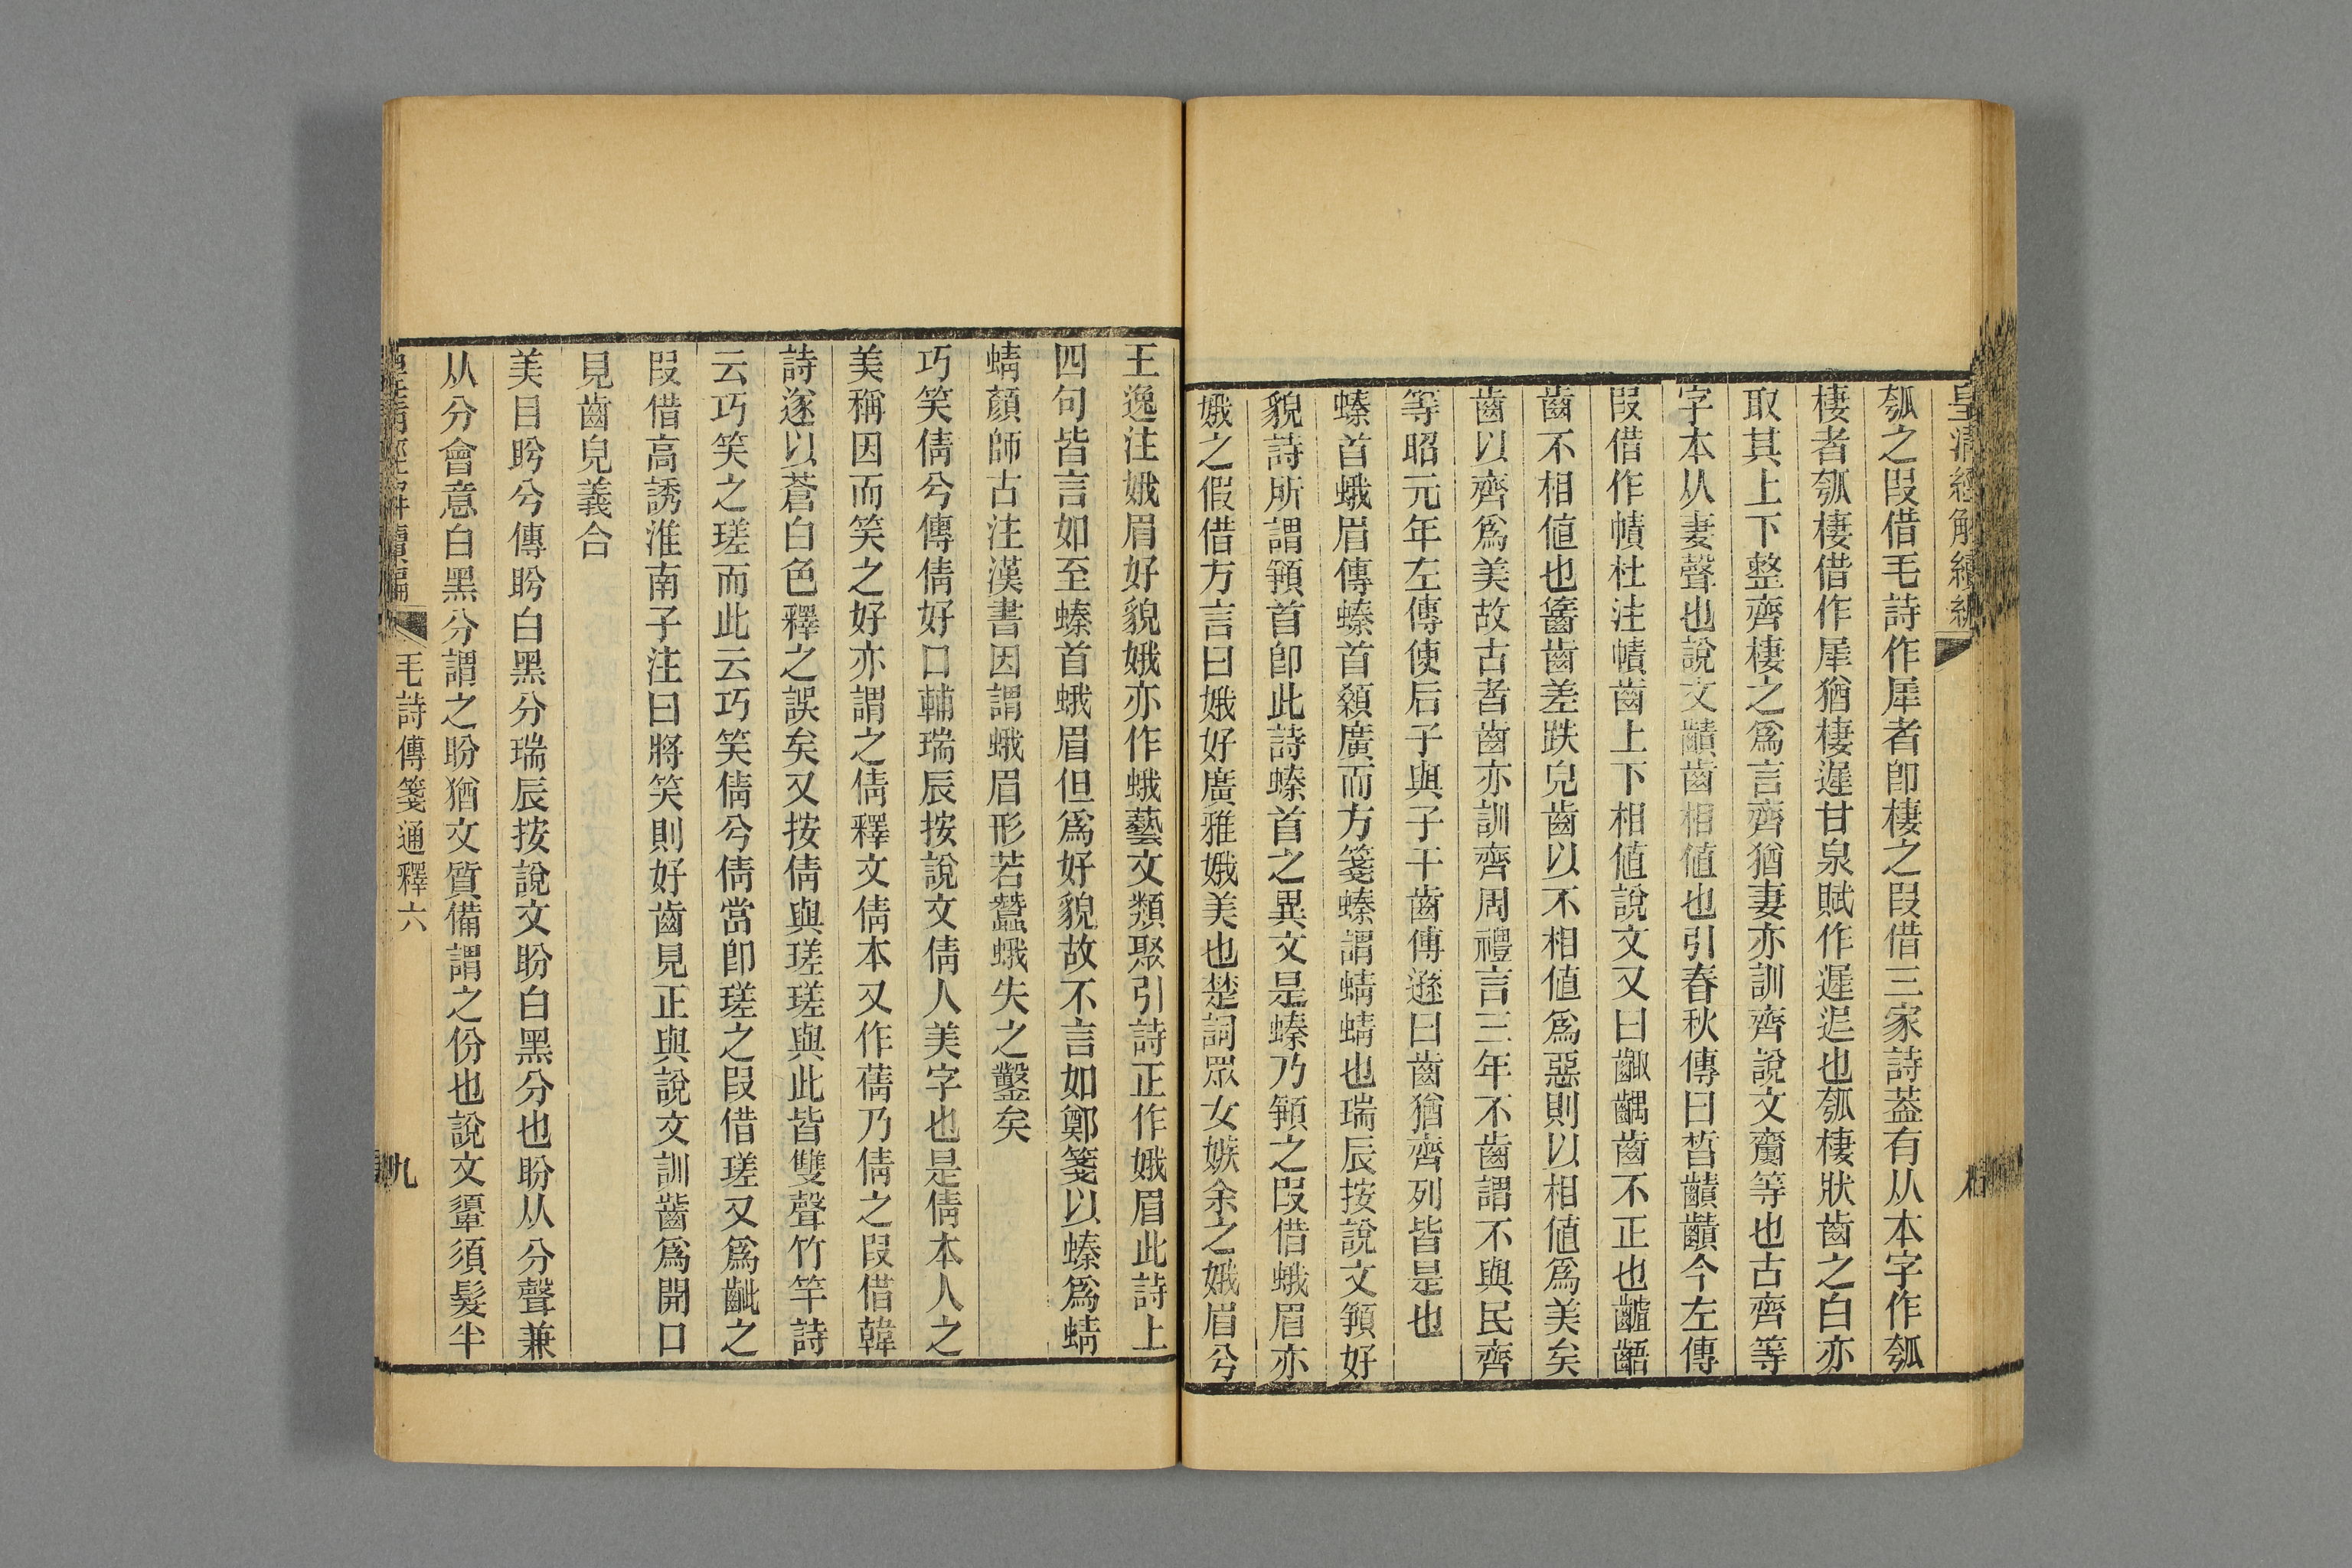 皇清經解續編
瓠之叚借毛詩作犀者卽棲之叚借三家詩葢有从本字作瓠
棲者瓠棲借作犀猶棲遲甘泉賦作遲遟也瓠棲狀齒之白亦
取其上下整齊棲之爲言齊猶妻亦訓齊說文齎等也古齊等
字本从妻聲也說文齰齒相值也引春秋傳曰晳齰齰今左傳
叚借作幘杜注幘齒上下相值說文又曰齱齵齒不正也齇齬
齒不相值也齹齒差跌皃齒以不相值爲惡則以相值爲美矣
齒以齊爲美故古者齒亦訓齊周禮言三年不齒謂不與民齊
等昭元年左傳使后子與子干齒傳遜曰齒猶齊列皆是也
螓首蛾眉傳螓首顙廣而方箋螓謂蜻蜻也瑞辰按說文頟好
貌詩所謂頟首卽此詩螓首之異文是螓乃頟之叚借蛾眉亦
娥之假借方言曰娥好廣雅娥美也楚詞眾女嫉余之娥眉兮
王逸注娥眉好貌娥亦作蛾藝文類聚引詩正作娥眉此詩上
四句皆言如至螓首蛾眉但爲好貌故不言如鄭箋以螓爲蜻
蜻顏師古注漢書因謂蛾眉形若蠶蛾失之鑿矣
巧笑倩兮傳倩好口輔瑞辰按說文倩人美字也是倩本人之
美稱因而笑之好亦謂之倩釋文倩本又作蒨乃倩之叚借韓
詩遂以蒼白色釋之誤矣又按倩與瑳瑳與此皆雙聲竹竿詩
云巧笑之瑳而此云巧笑倩兮倩當卽瑳之叚借瑳又爲齜之
叚借高誘淮南子注曰將笑則好齒見正與說文訓齜爲開口
見齒皃義合
美目盼兮傳盼白黑分瑞辰按說文盼白黑分也盼从分聲兼
从分會意白黑分謂之盼猶文質備謂之份也說文䫤須髮半
皇清經解續編 毛詩傳箋通釋六 九